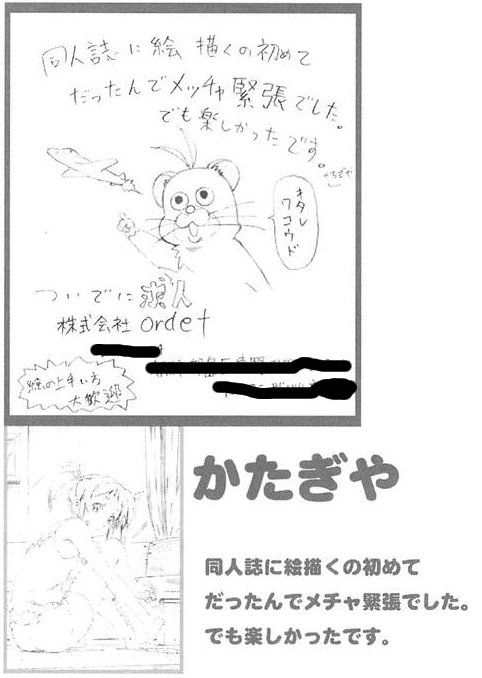 同人誌に絵描くの初めて
だったんでメッチャ緊張でした。
でも楽しかったです。
かたぎや
キタレ
ワコウド
ついでに求人
株式会社ordet
絵の上手い方
大歓迎
かたぎや
同人誌に絵描くの初めて
だったんでメチャ緊張でした。
でも楽しかったです。